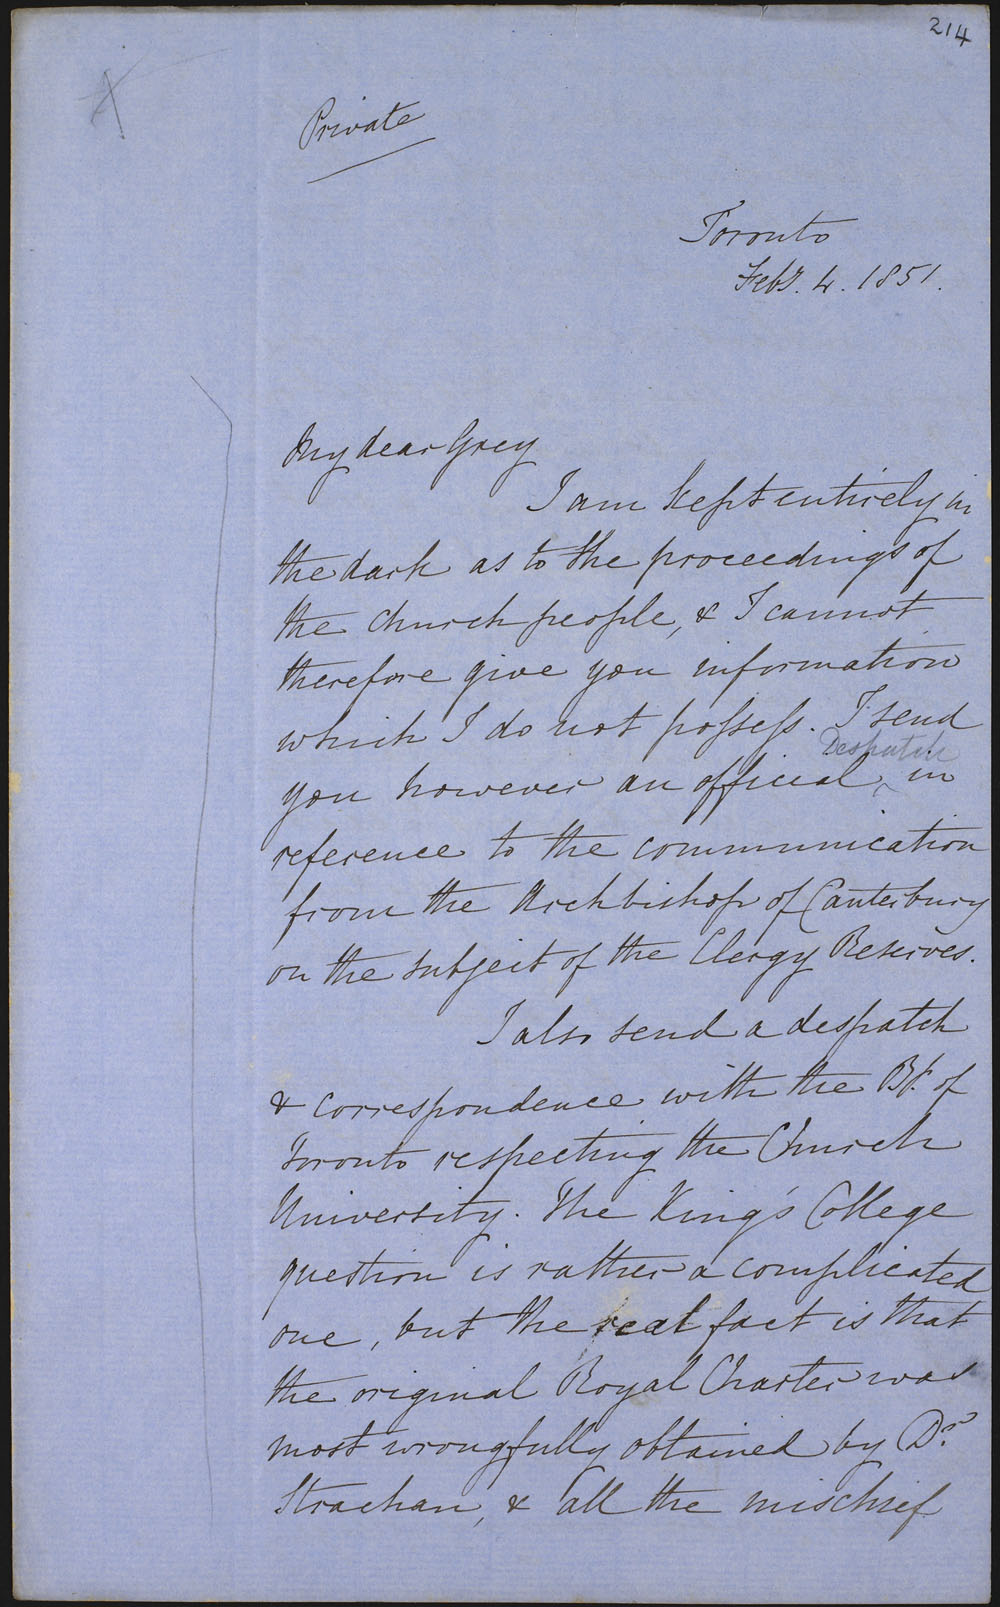 214
Private
Toronto
Feby. 4. 1851.
My dear Grey
I am kept entirely in
the dark as to the proceedings of
the Church people, & I cannot
therefore give you information
which I do not possess. I send
Despatch
you however an official ‸ in
reference to the communication
from the Archbishop of Canterbury
on the subject of the Clergy Reserves.
I also send a despatch
& correspondence with the Bp. of
Toronto respecting the Church
University. The King's College
question is rather a complicated
one, but the real fact is that
the original Royal Charter was
most wrongfully obtained by Dr.
Strachan, & all the mischief